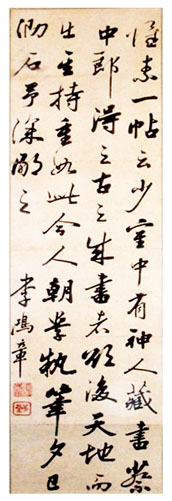 懷素一帖云少室中有神人藏書蔡
中郎得之古之成書者欲後天地而
出其持重如此今人朝學執筆夕已
勒石予深鄙之
李鴻章